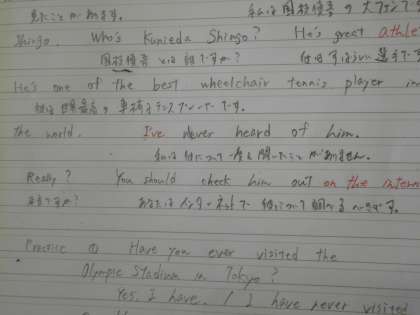 見たことがあります。 私は国枝慎吾の大ファンです
Shingo. Who's Kunieda Shingo? He's great athle
国枝慎吾とは誰ですか? 彼はすばらしい選手です
He's one of the best wheelchair tennis player in
彼は世界最高の車椅子テニスプレーヤーです。
the world. I've never heard of him.
私は彼について一度も聞いたことがありません。
Really? You should check him out on the intern
本当ですか? あなたはインターネットで彼について調べるべきです。
Practice ① Have you ever visited the
Olympic Stadium in Tokyo?
Yes, I have. / I have never visited